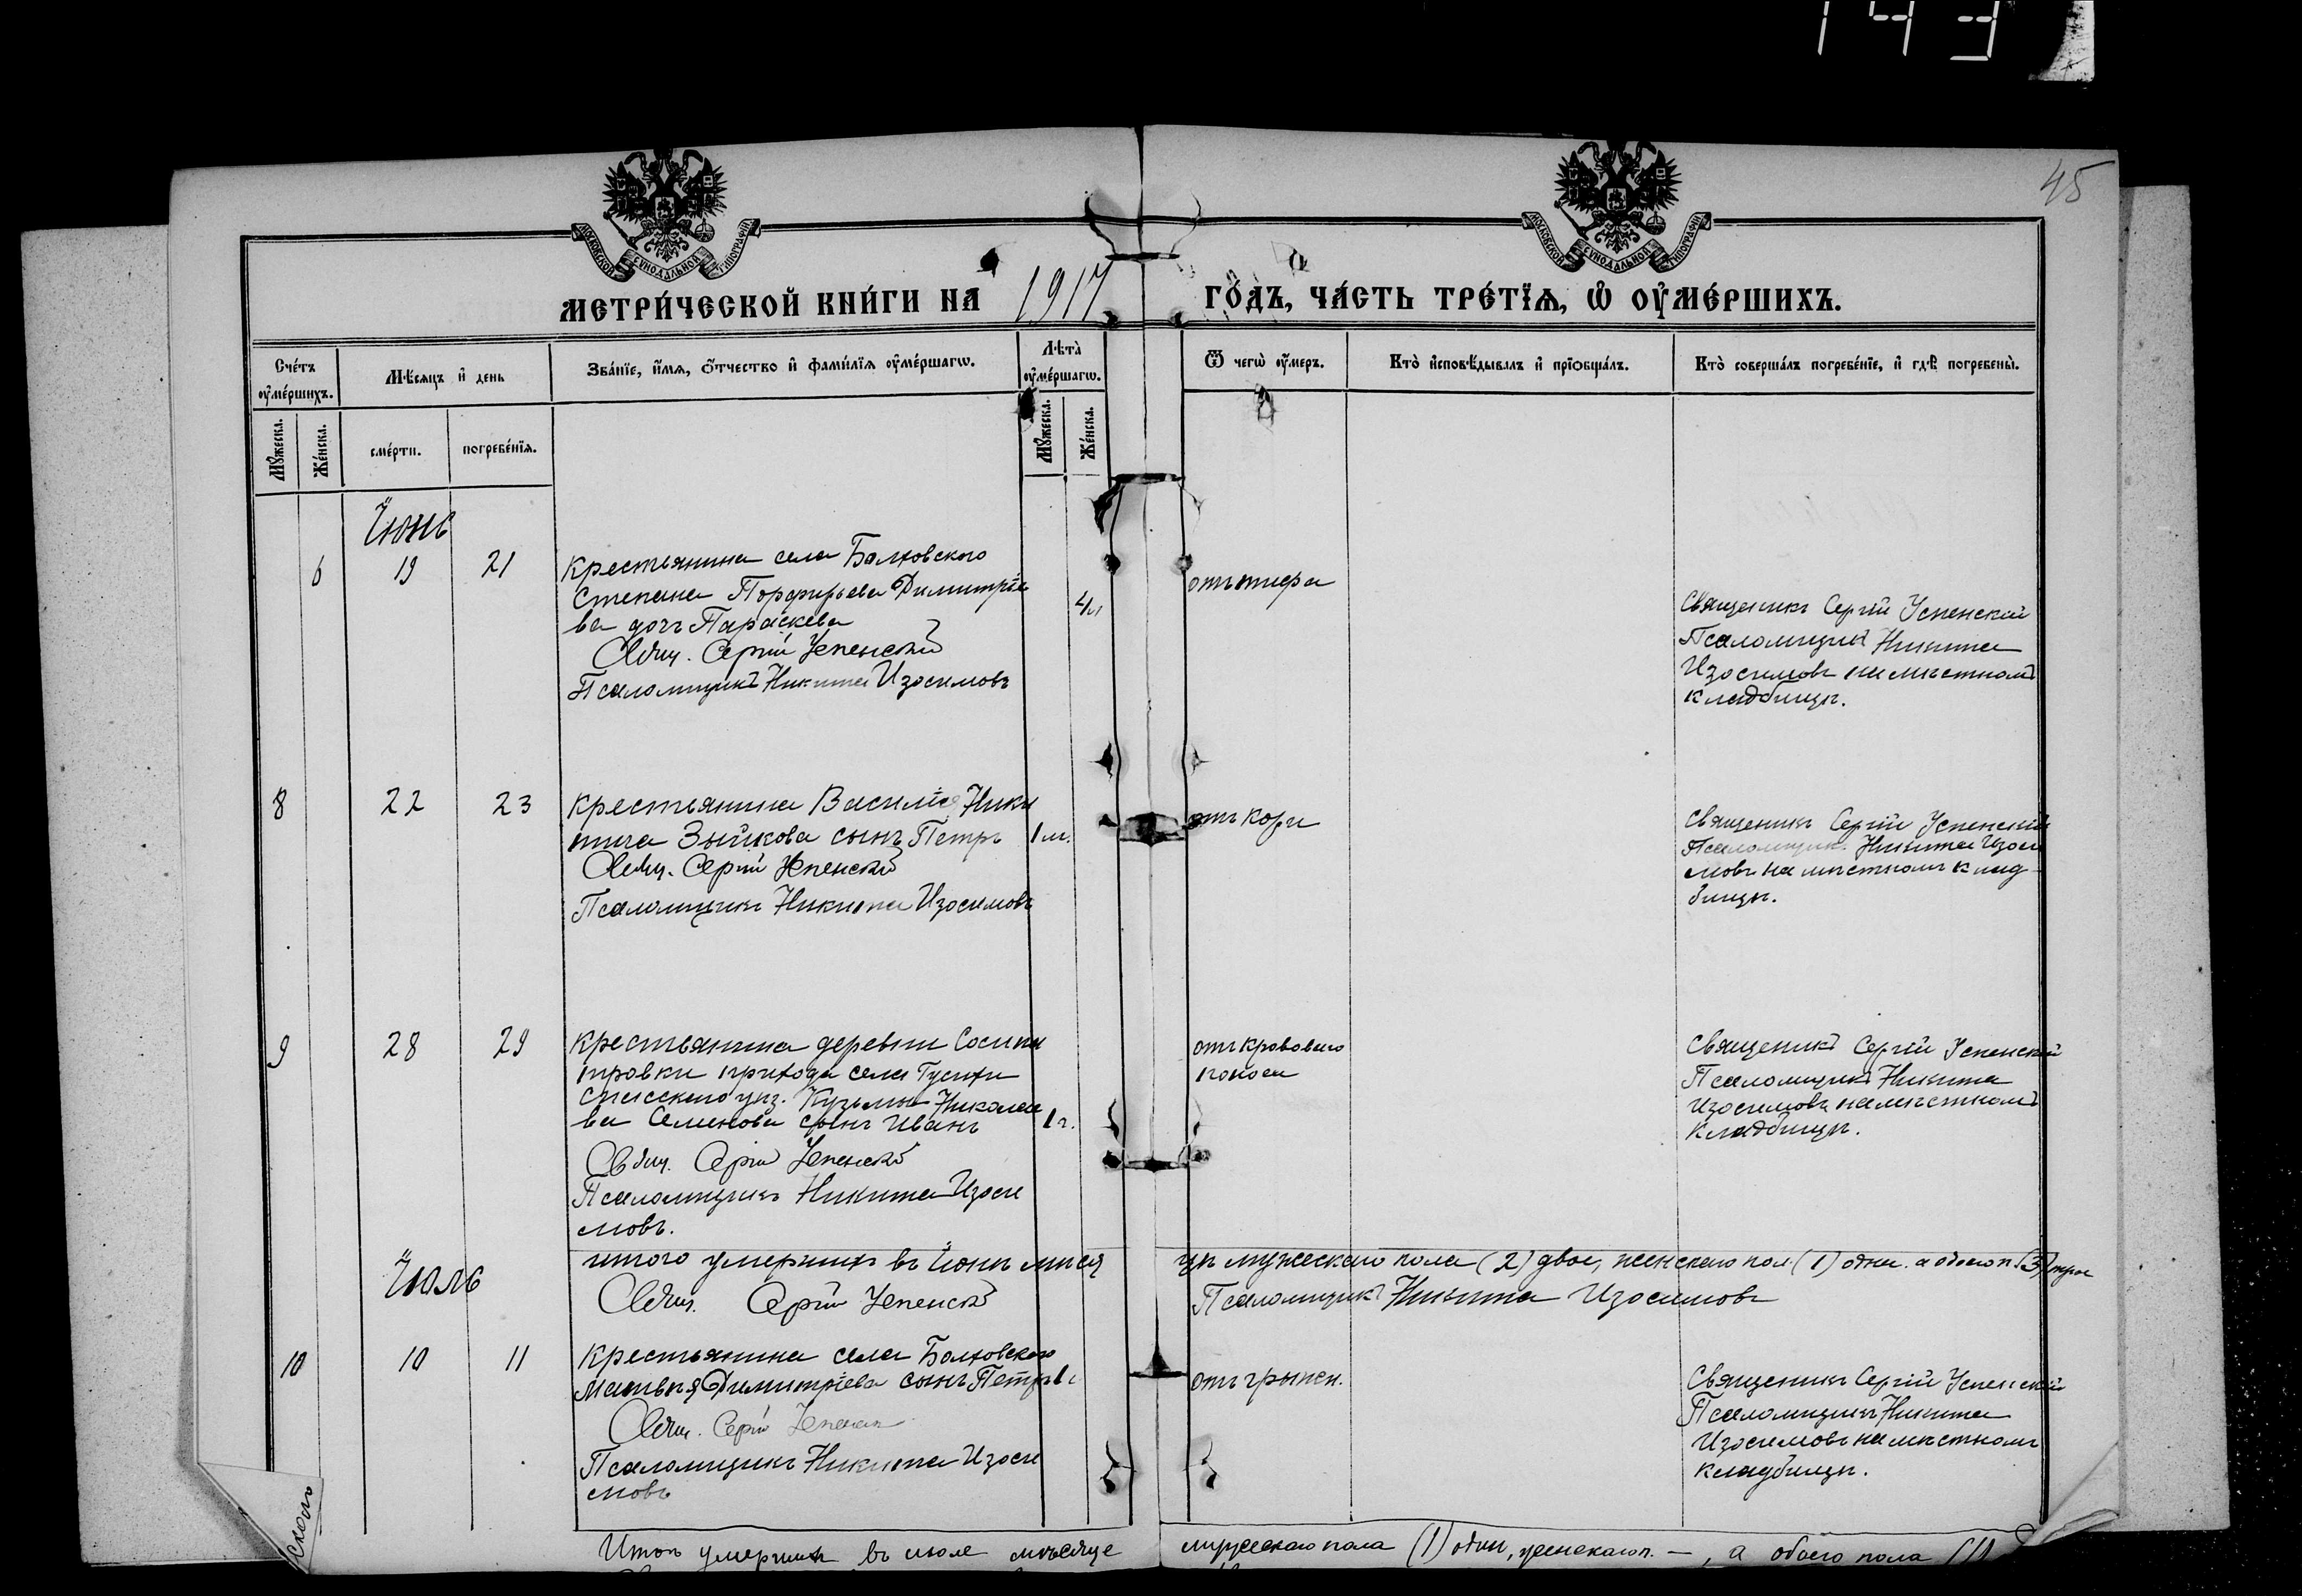 143
45
МОСКОВСКОЙ СѴНОДАЛЬНОЙ ТИПОГРАФІИ
МОСКОВСКОЙ СѴНОДАЛЬНОЙ ТИПОГРАФІИ
МЕТРИ́ЧЕСКОЙ КНИ́ГИ НА 1917 ГО́ДЪ, ЧА́СТЬ ТРЕ́ТЇѦ, Ѡ҆ ОУ҆МЕ́РШИХЪ.
Сче́тъ оу҆ме́ршихъ.
Мѣ́сяцъ и҆ день
Зва́нїе, и҆́мѧ, ѻ҆́тчество и҆ фами́лїѧ оу҆ме́ршагѡ.
Лѣ́та̀ оу҆ме́ршагѡ.
Ѿ чегѡ̀ оу҆́меръ.
Кто̀ и҆сповѣ́дывалъ и҆ прїѻбща́лъ.
Кто̀ соверша́лъ погребе́нїе, и҆ гдѣ̀ погребены̀.
Мꙋ́жеска.
Же́нска.
сме́рти.
погребе́нїѧ.
Мꙋ́жеска.
Же́нска.
Іюнь
6 19 21
Крестьянина села Болховского
Степана Порфирьева Димитріе
ва дочь Параскева
Свящ. Сергій Успенскій
Псаломщикъ Никита Изосимовъ
отъ тифа
Священикъ Сергій Успенскій
Псаломщикъ Никита
Изосимовъ на мѣстномъ
кладбищѣ.
8 22 23
Крестьянина Василія Ники
тича Зыйкова сынъ Петръ
1 м.
Свящ. Сергій Успенскій
Псаломщикъ Никита Изосимовъ
отъ кори
Священикъ Сергій Успенскій
Псаломщик. Никита Изоси
мовъ на мѣстномъ клад-
бищѣ.
9 28 29
Крестьянина деревни Сосипа
тровки прихода села Гусихи
Спасскаго уѣз. Кузьмы Николае
ва Семенова сынъ Иванъ
1 г.
Свящ. Сергій Успенскій
Псаломщикъ Никита Изоси
мовъ.
отъ кроваваго
поноса
Священикъ Сергій Успенскій
Псаломщикъ Никита
Изосимовъ на мѣстномъ
кладбищѣ.
итого умершихъ въ Іюнѣ мѣся цѣ мужескаго пола (2) двое, женскаго пол. (1) одна. а обоего п. (3) трое
Свящ. Сергій Успенскій
Псаломщикъ Никита Изосимовъ
Іюль
10 10 11
Крестьянина села Болховского
Матвѣя Димитріева сынъ Петръ
Свящ. Сергій Успенскій
Псаломщикъ Никита Изоси
мовъ
отъ грыжи.
Священикъ Сергій Успенскій
Псаломщикъ Никита
Изосимовъ на мѣстномъ
кладбищѣ.
Итого умершихъ въ июле мѣсяце мужескаго пола (1) один, женскаго п. —, а обоего пола (1)